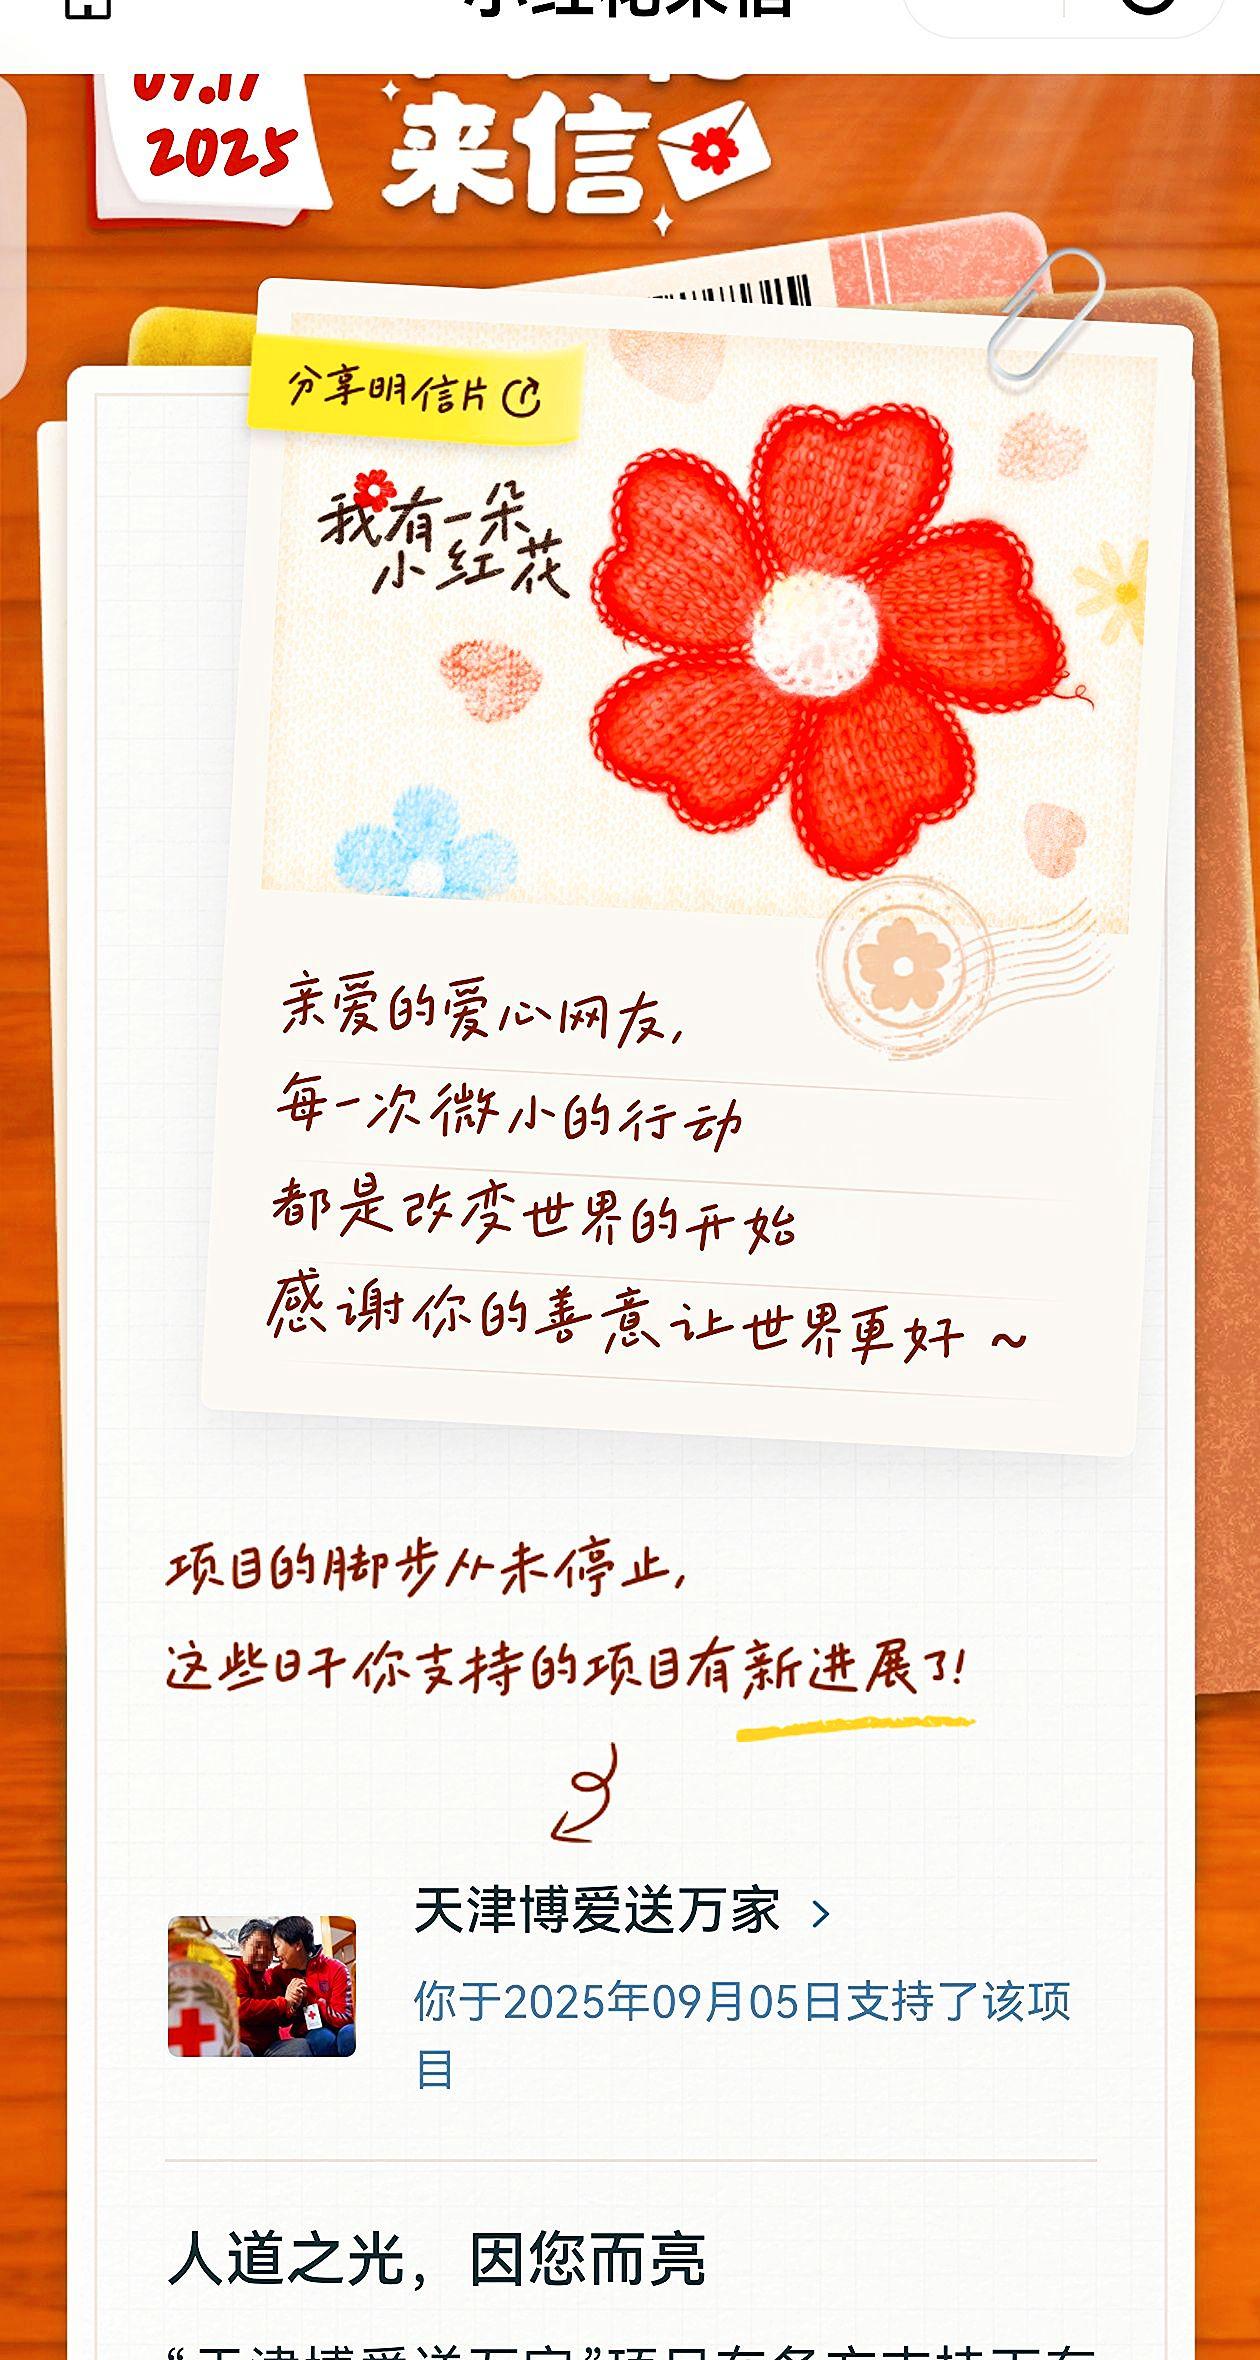 小红花来信
09.17
2025
来信
分享明信片
我有一朵
小红花
亲爱的爱心网友,
每一次微小的行动
都是改变世界的开始
感谢你的善意让世界更好 ~
项目的脚步从未停止,
这些日子你支持的项目有新进展了!
天津博爱送万家 >
你于2025年09月05日支持了该项
目
人道之光，因您而亮
“天津博爱送万家”项目在各方支持下在